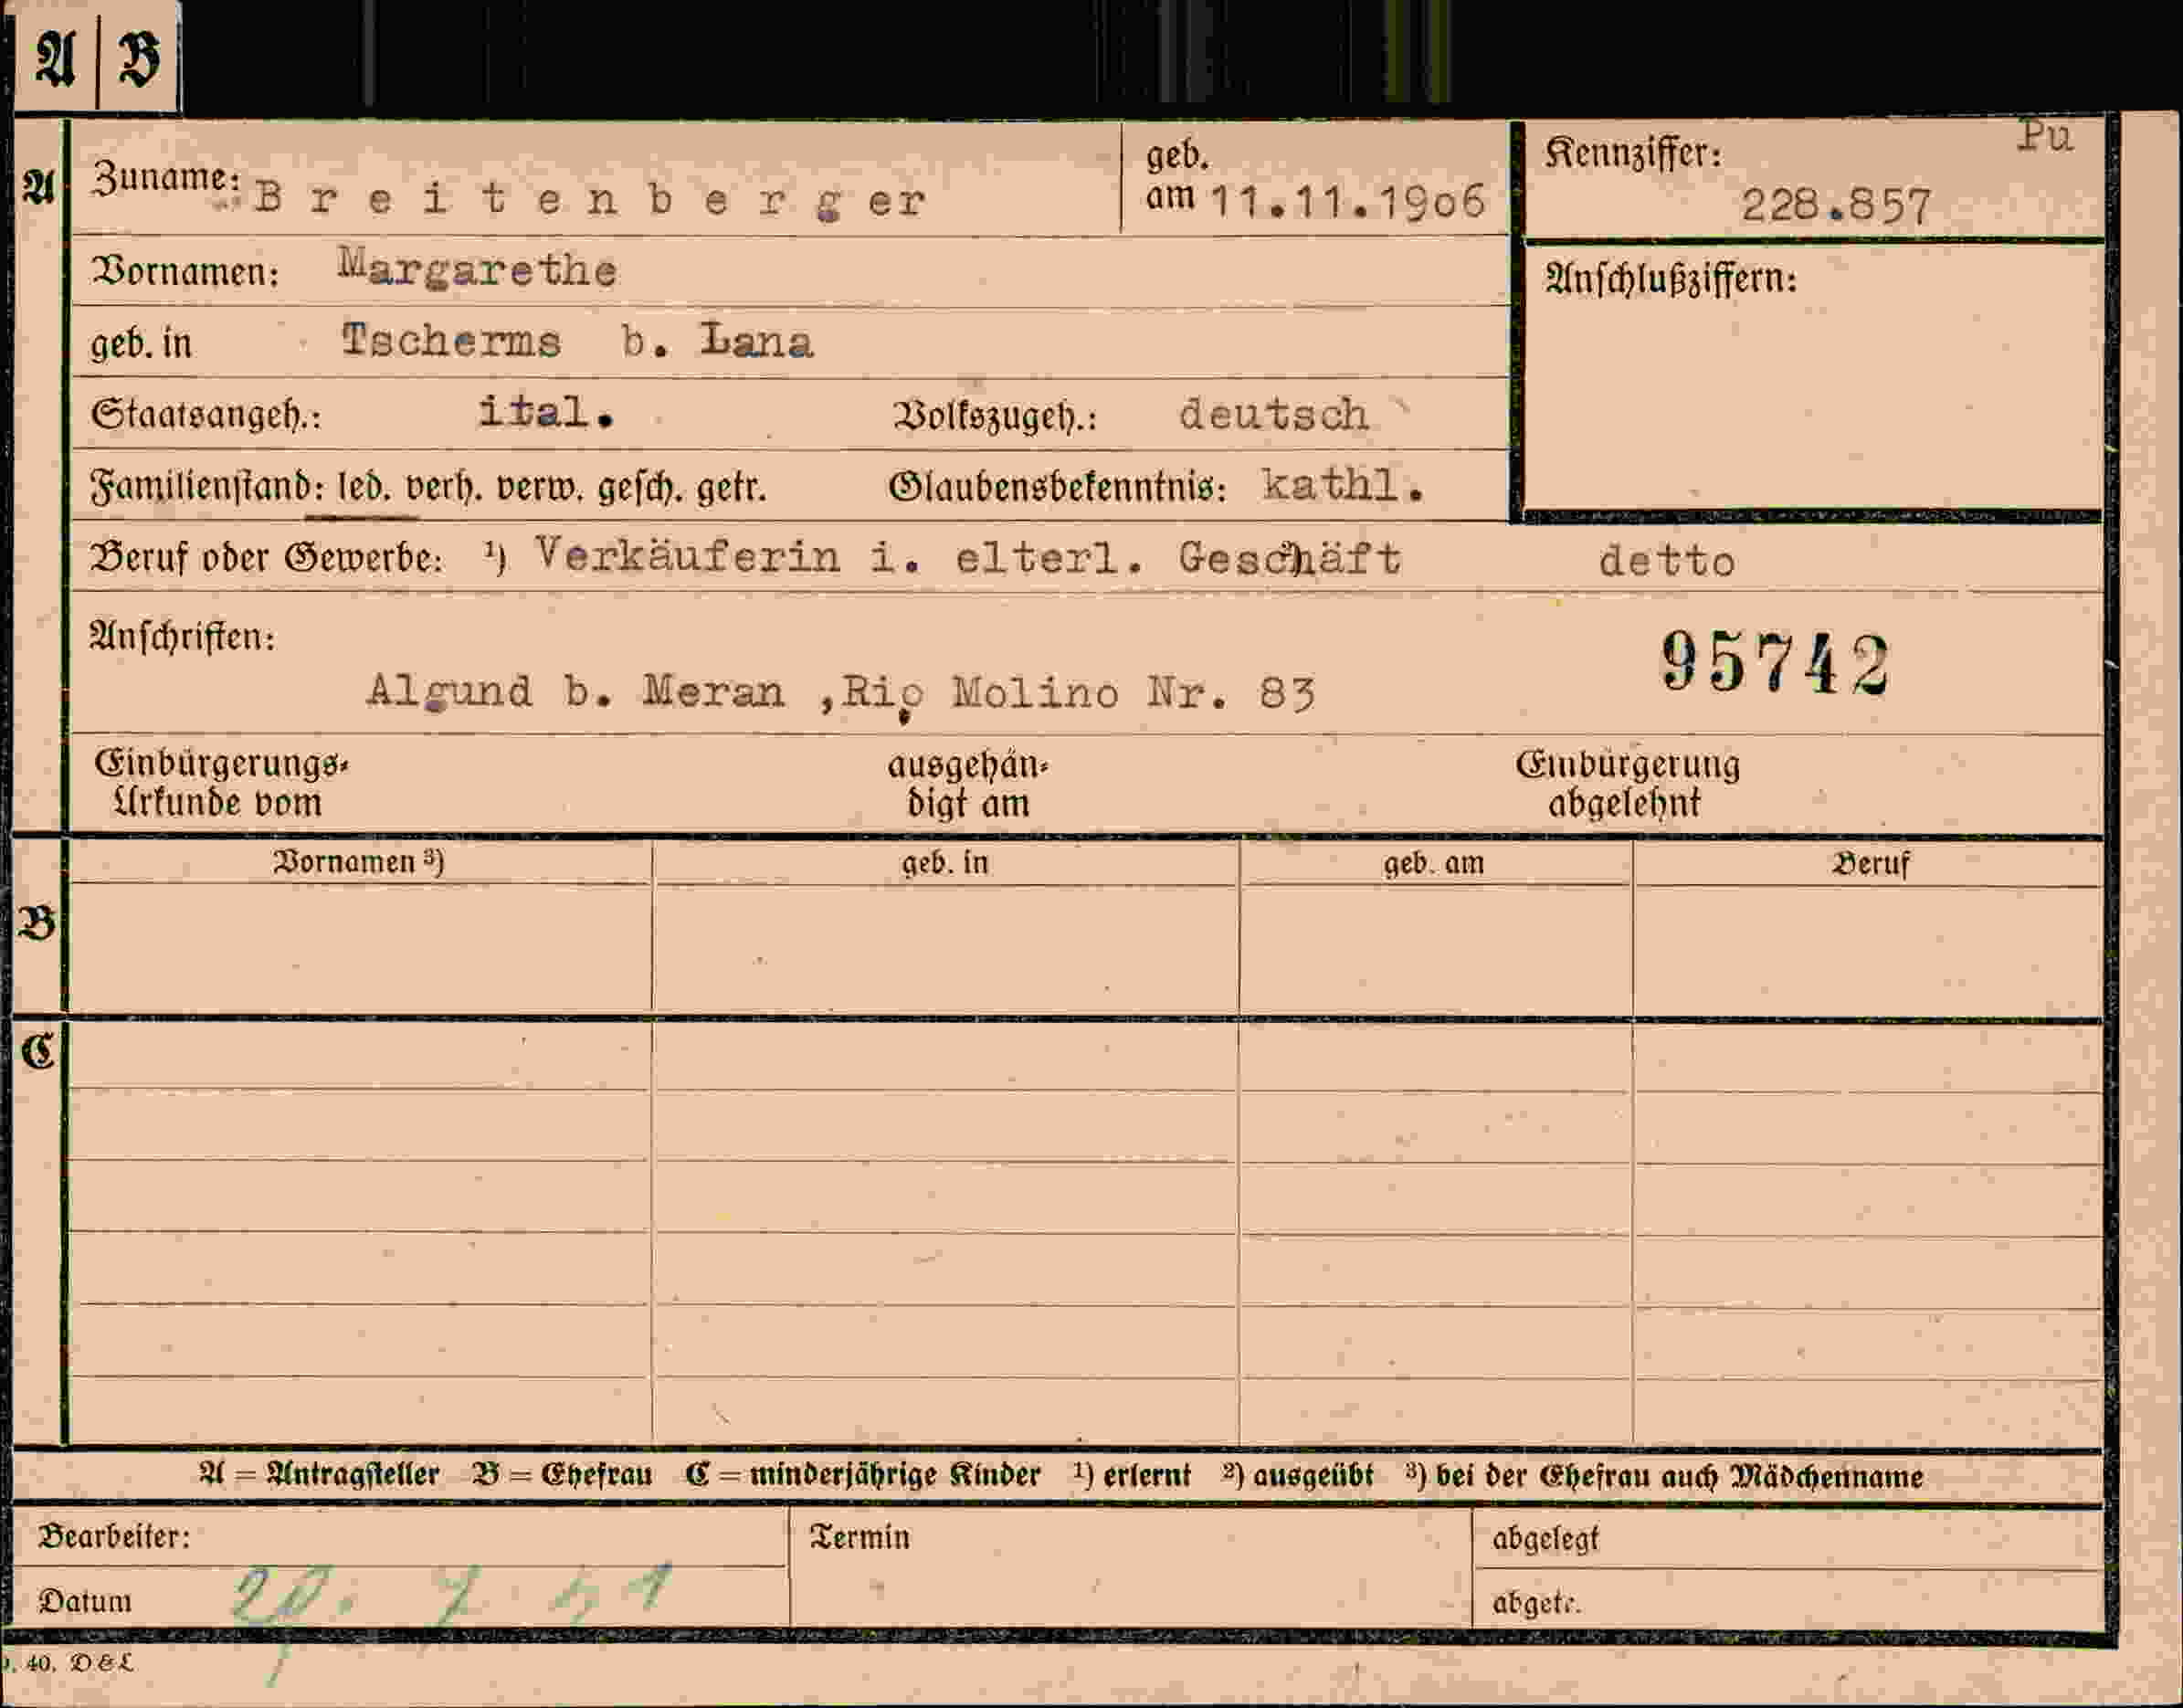 A | B
Pu
A Zuname: Breitenberger geb. am 11.11.1906 Kennziffer: 228.857
Vornamen: Margarethe
Anschlußziffern:
geb. in Tscherms b. Lana
Staatsangeh.: ital. Volkszugeh.: deutsch
Familienstand: led. verh. verw. gesch. getr. Glaubensbekenntnis: kathl.
Beruf oder Gewerbe: ¹) Verkäuferin i. elterl. Geschäft detto
Anschriften:
95742
Algund b. Meran ,Rio Molino Nr. 83
Einbürgerungs-Urkunde vom ausgehän-digt am Einbürgerung abgelehnt
Vornamen ³) geb. in geb. am Beruf
B
C
A = Antragsteller B = Ehefrau C = minderjährige Kinder ¹) erlernt ²) ausgeübt ³) bei der Ehefrau auch Mädchenname
Bearbeiter: Termin abgelegt
Datum abgetr.
40. D & L